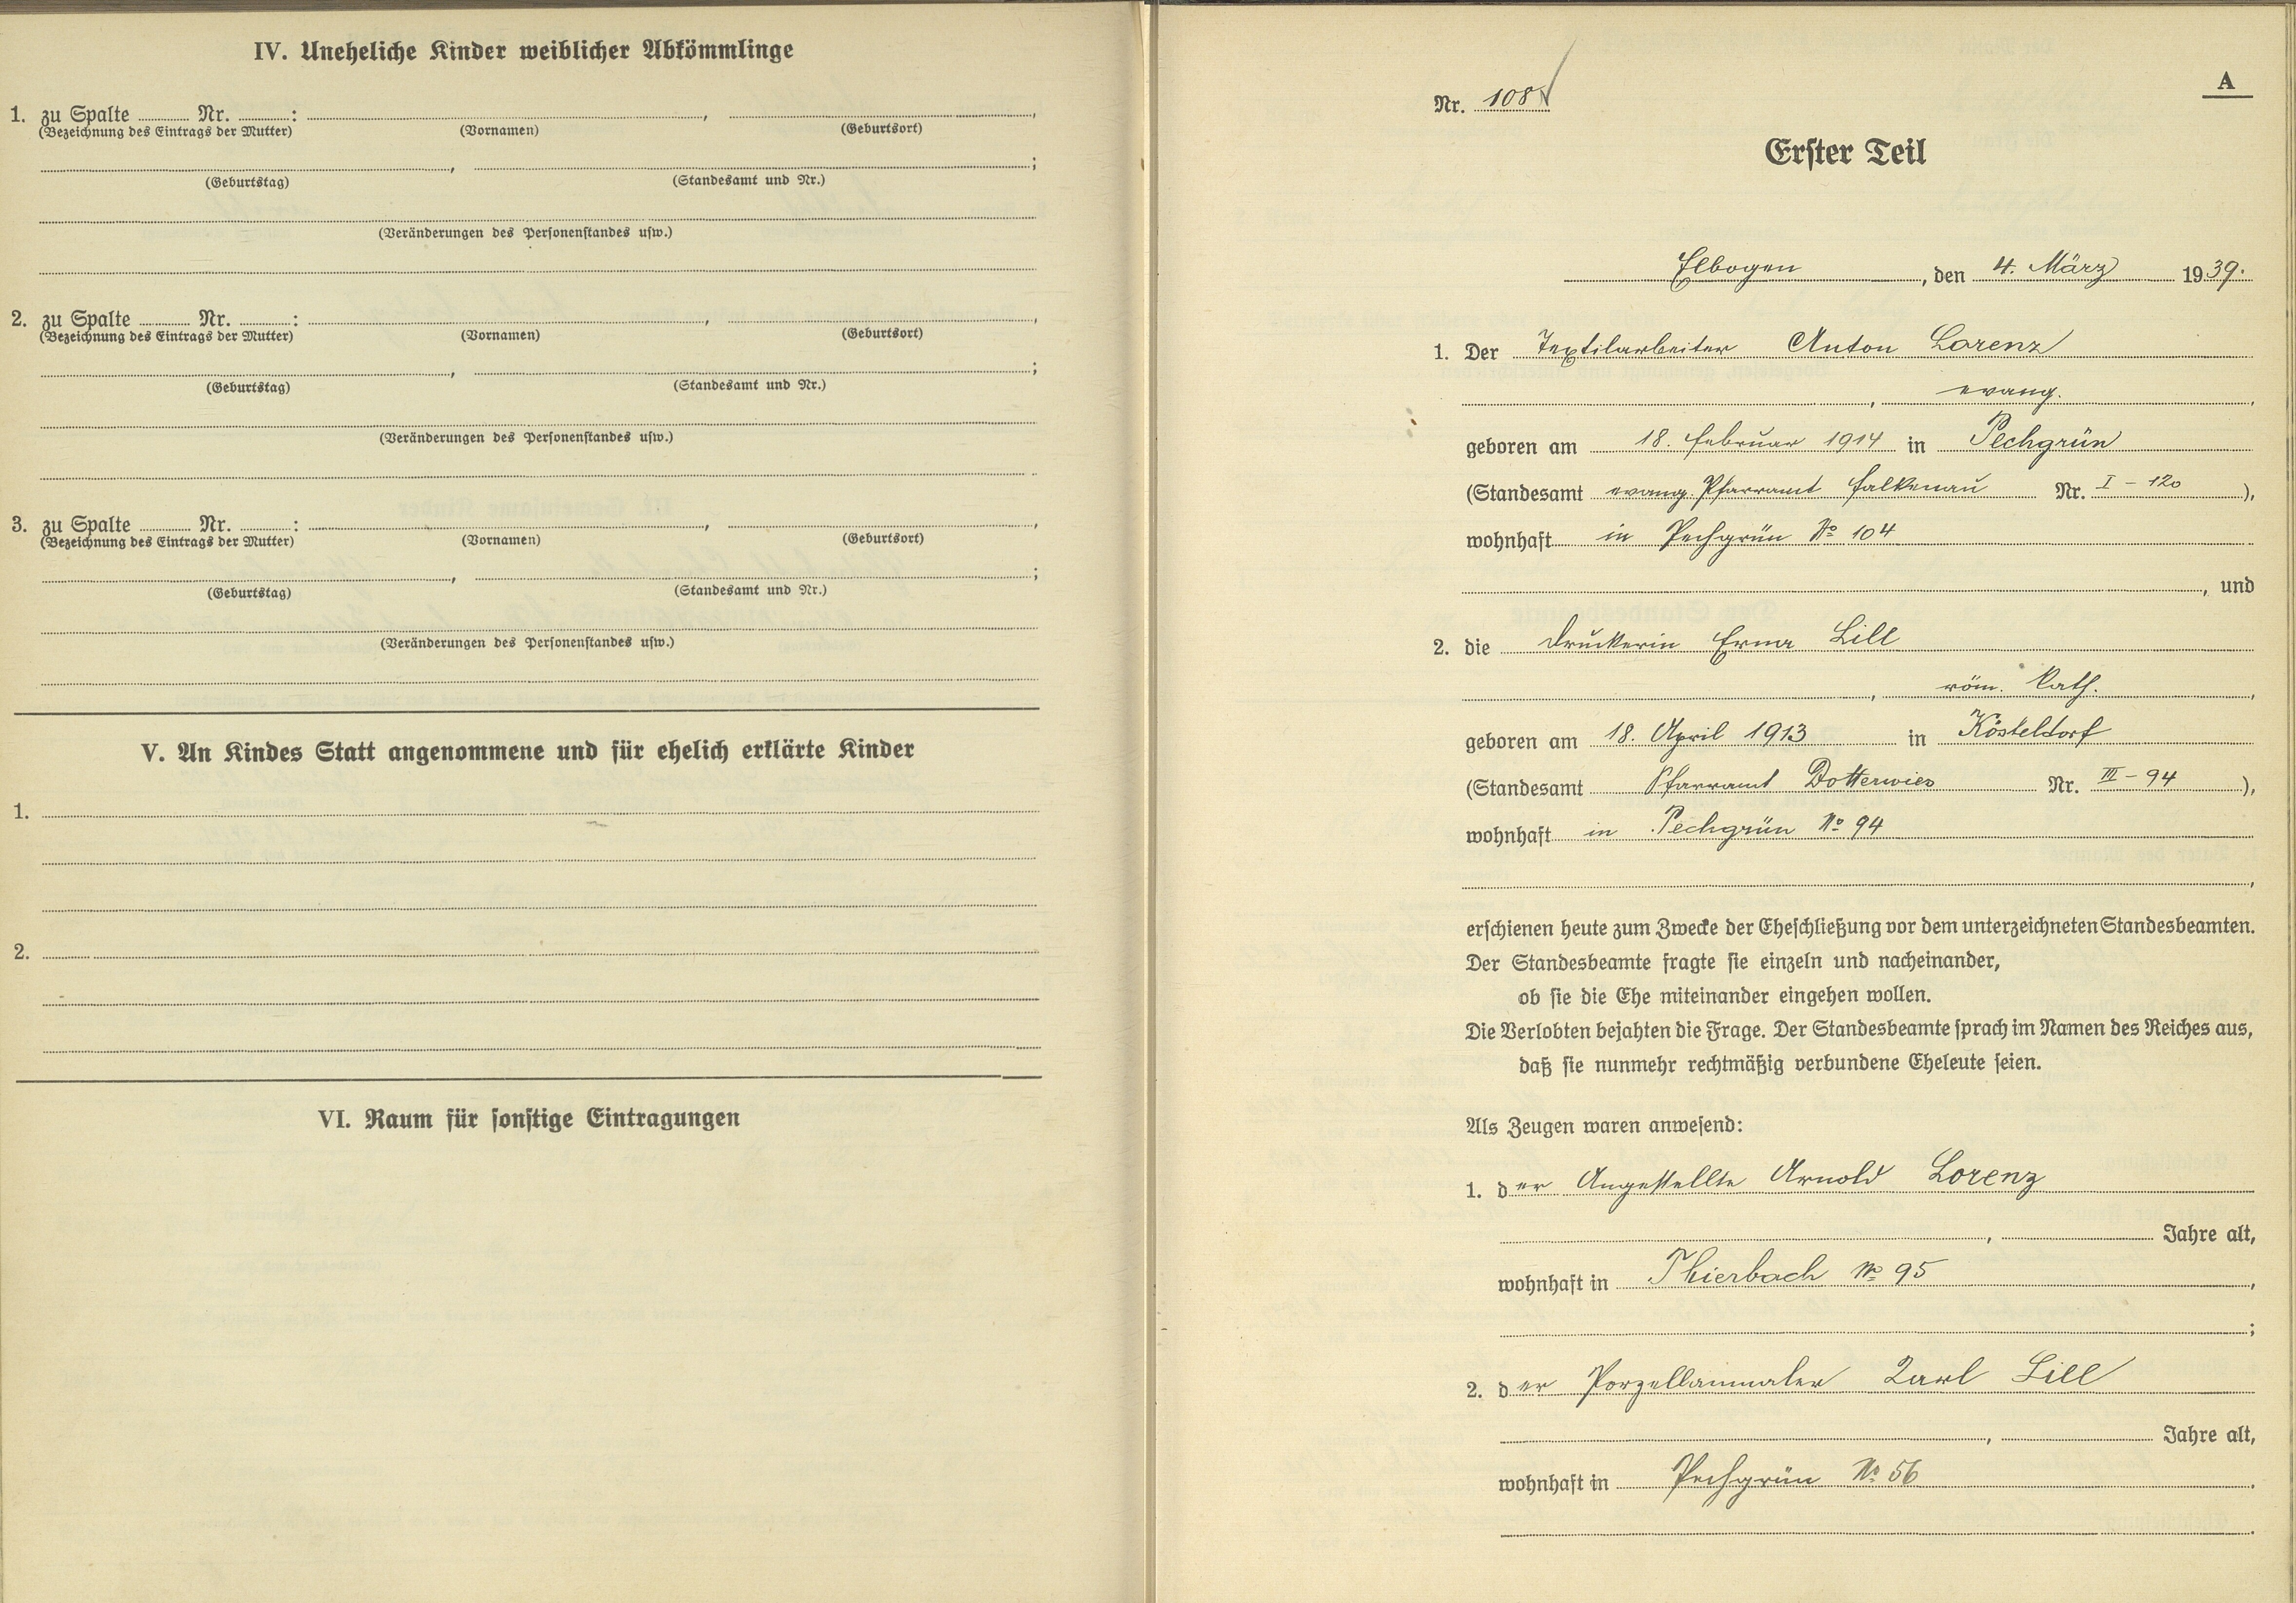 IV. Uneheliche Kinder weiblicher Abkömmlinge
1. zu Spalte ........ Nr. ........ :
(Bezeichnung des Eintrags der Mutter) (Vornamen) (Geburtsort)
(Geburtstag) (Standesamt und Nr.)
(Veränderungen des Personenstandes usw.)
2. zu Spalte ........ Nr. ........ :
(Bezeichnung des Eintrags der Mutter) (Vornamen) (Geburtsort)
(Geburtstag) (Standesamt und Nr.)
(Veränderungen des Personenstandes usw.)
3. zu Spalte ........ Nr. ........ :
(Bezeichnung des Eintrags der Mutter) (Vornamen) (Geburtsort)
(Geburtstag) (Standesamt und Nr.)
(Veränderungen des Personenstandes usw.)
V. An Kindes Statt angenommene und für ehelich erklärte Kinder
1.
2.
VI. Raum für sonstige Eintragungen
A
Nr. 108
Erster Teil
Elbogen, den 4. März 1939.
1. Der Textilarbeiter Anton Lorenz
, evang.,
geboren am 18. Februar 1914 in Pechgrün
(Standesamt evang. Pfarramt Falkenau Nr. I – 120),
wohnhaft in Pechgrün № 104
, und
2. die Druckerin Erna Lill
, röm. kath.,
geboren am 18. April 1913 in Kösteldorf
(Standesamt Pfarramt Dotterwies Nr. III – 94),
wohnhaft in Pechgrün № 94
,
erschienen heute zum Zwecke der Eheschließung vor dem unterzeichneten Standesbeamten.
Der Standesbeamte fragte sie einzeln und nacheinander,
ob sie die Ehe miteinander eingehen wollen.
Die Verlobten bejahten die Frage. Der Standesbeamte sprach im Namen des Reiches aus,
daß sie nunmehr rechtmäßig verbundene Eheleute seien.
Als Zeugen waren anwesend:
1. der Angestellte Arnold Lorenz
, Jahre alt,
wohnhaft in Thierbach № 95,
;
2. der Porzellanmaler Karl Lill
, Jahre alt,
wohnhaft in Pechgrün № 56.